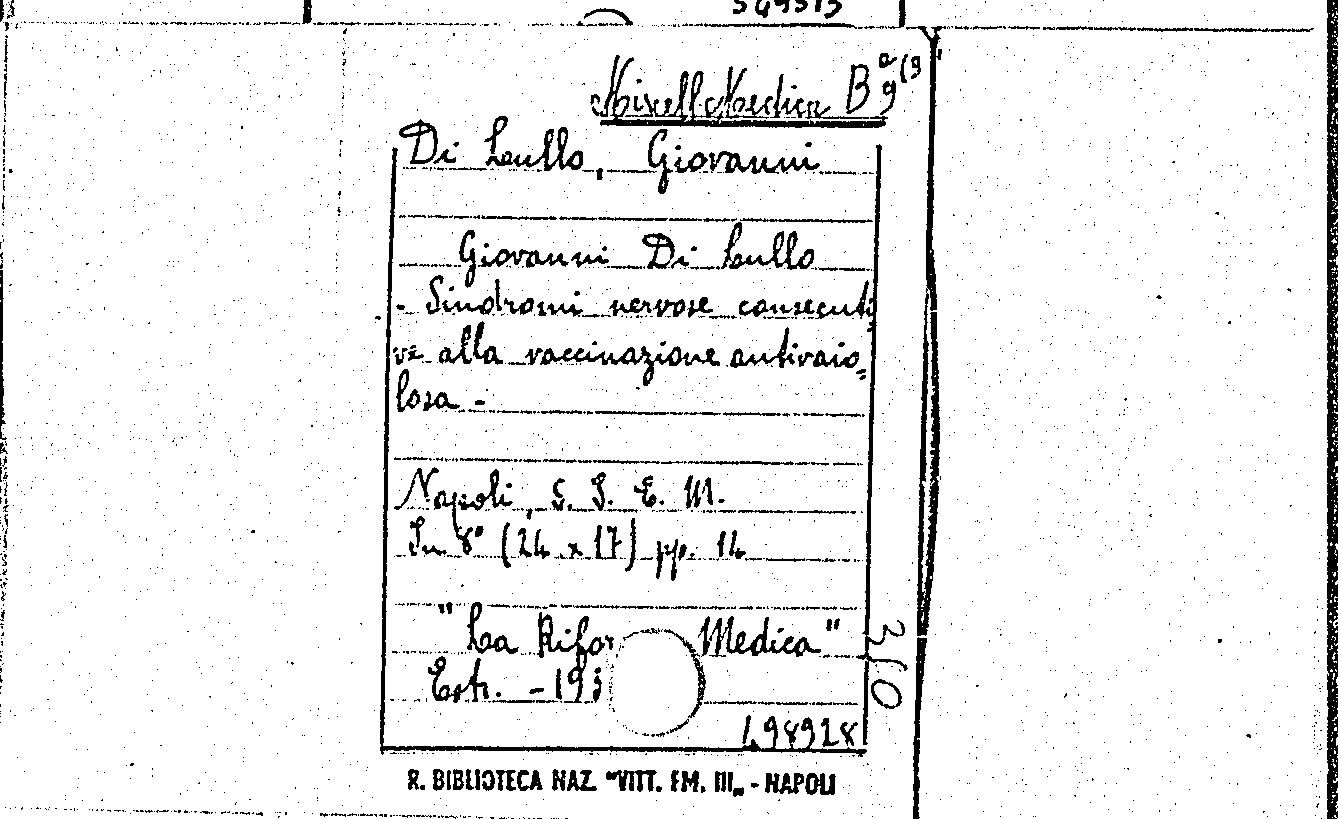 Miscell. Medica B
Di Lullo, Giovanni
Giovanni Di Lullo
- Sindromi nervose consecuti=
ve alla vaccinazione antivaio=
losa -
Napoli, S. I. E. M.
In 8° (24 x 17) pp. 14
"La Rifor Medica"
Estr. - 193
310
498928
R. BIBLIOTECA NAZ. "VITT. EM. III„ - NAPOLI